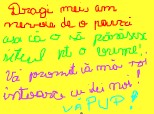 Dragi mei am
nevoie de o pauză
așa că o să părăsesc
siteul pt o vreme!
Vă promit că mă voi
întoarce cu dei noi!
vă PUP!